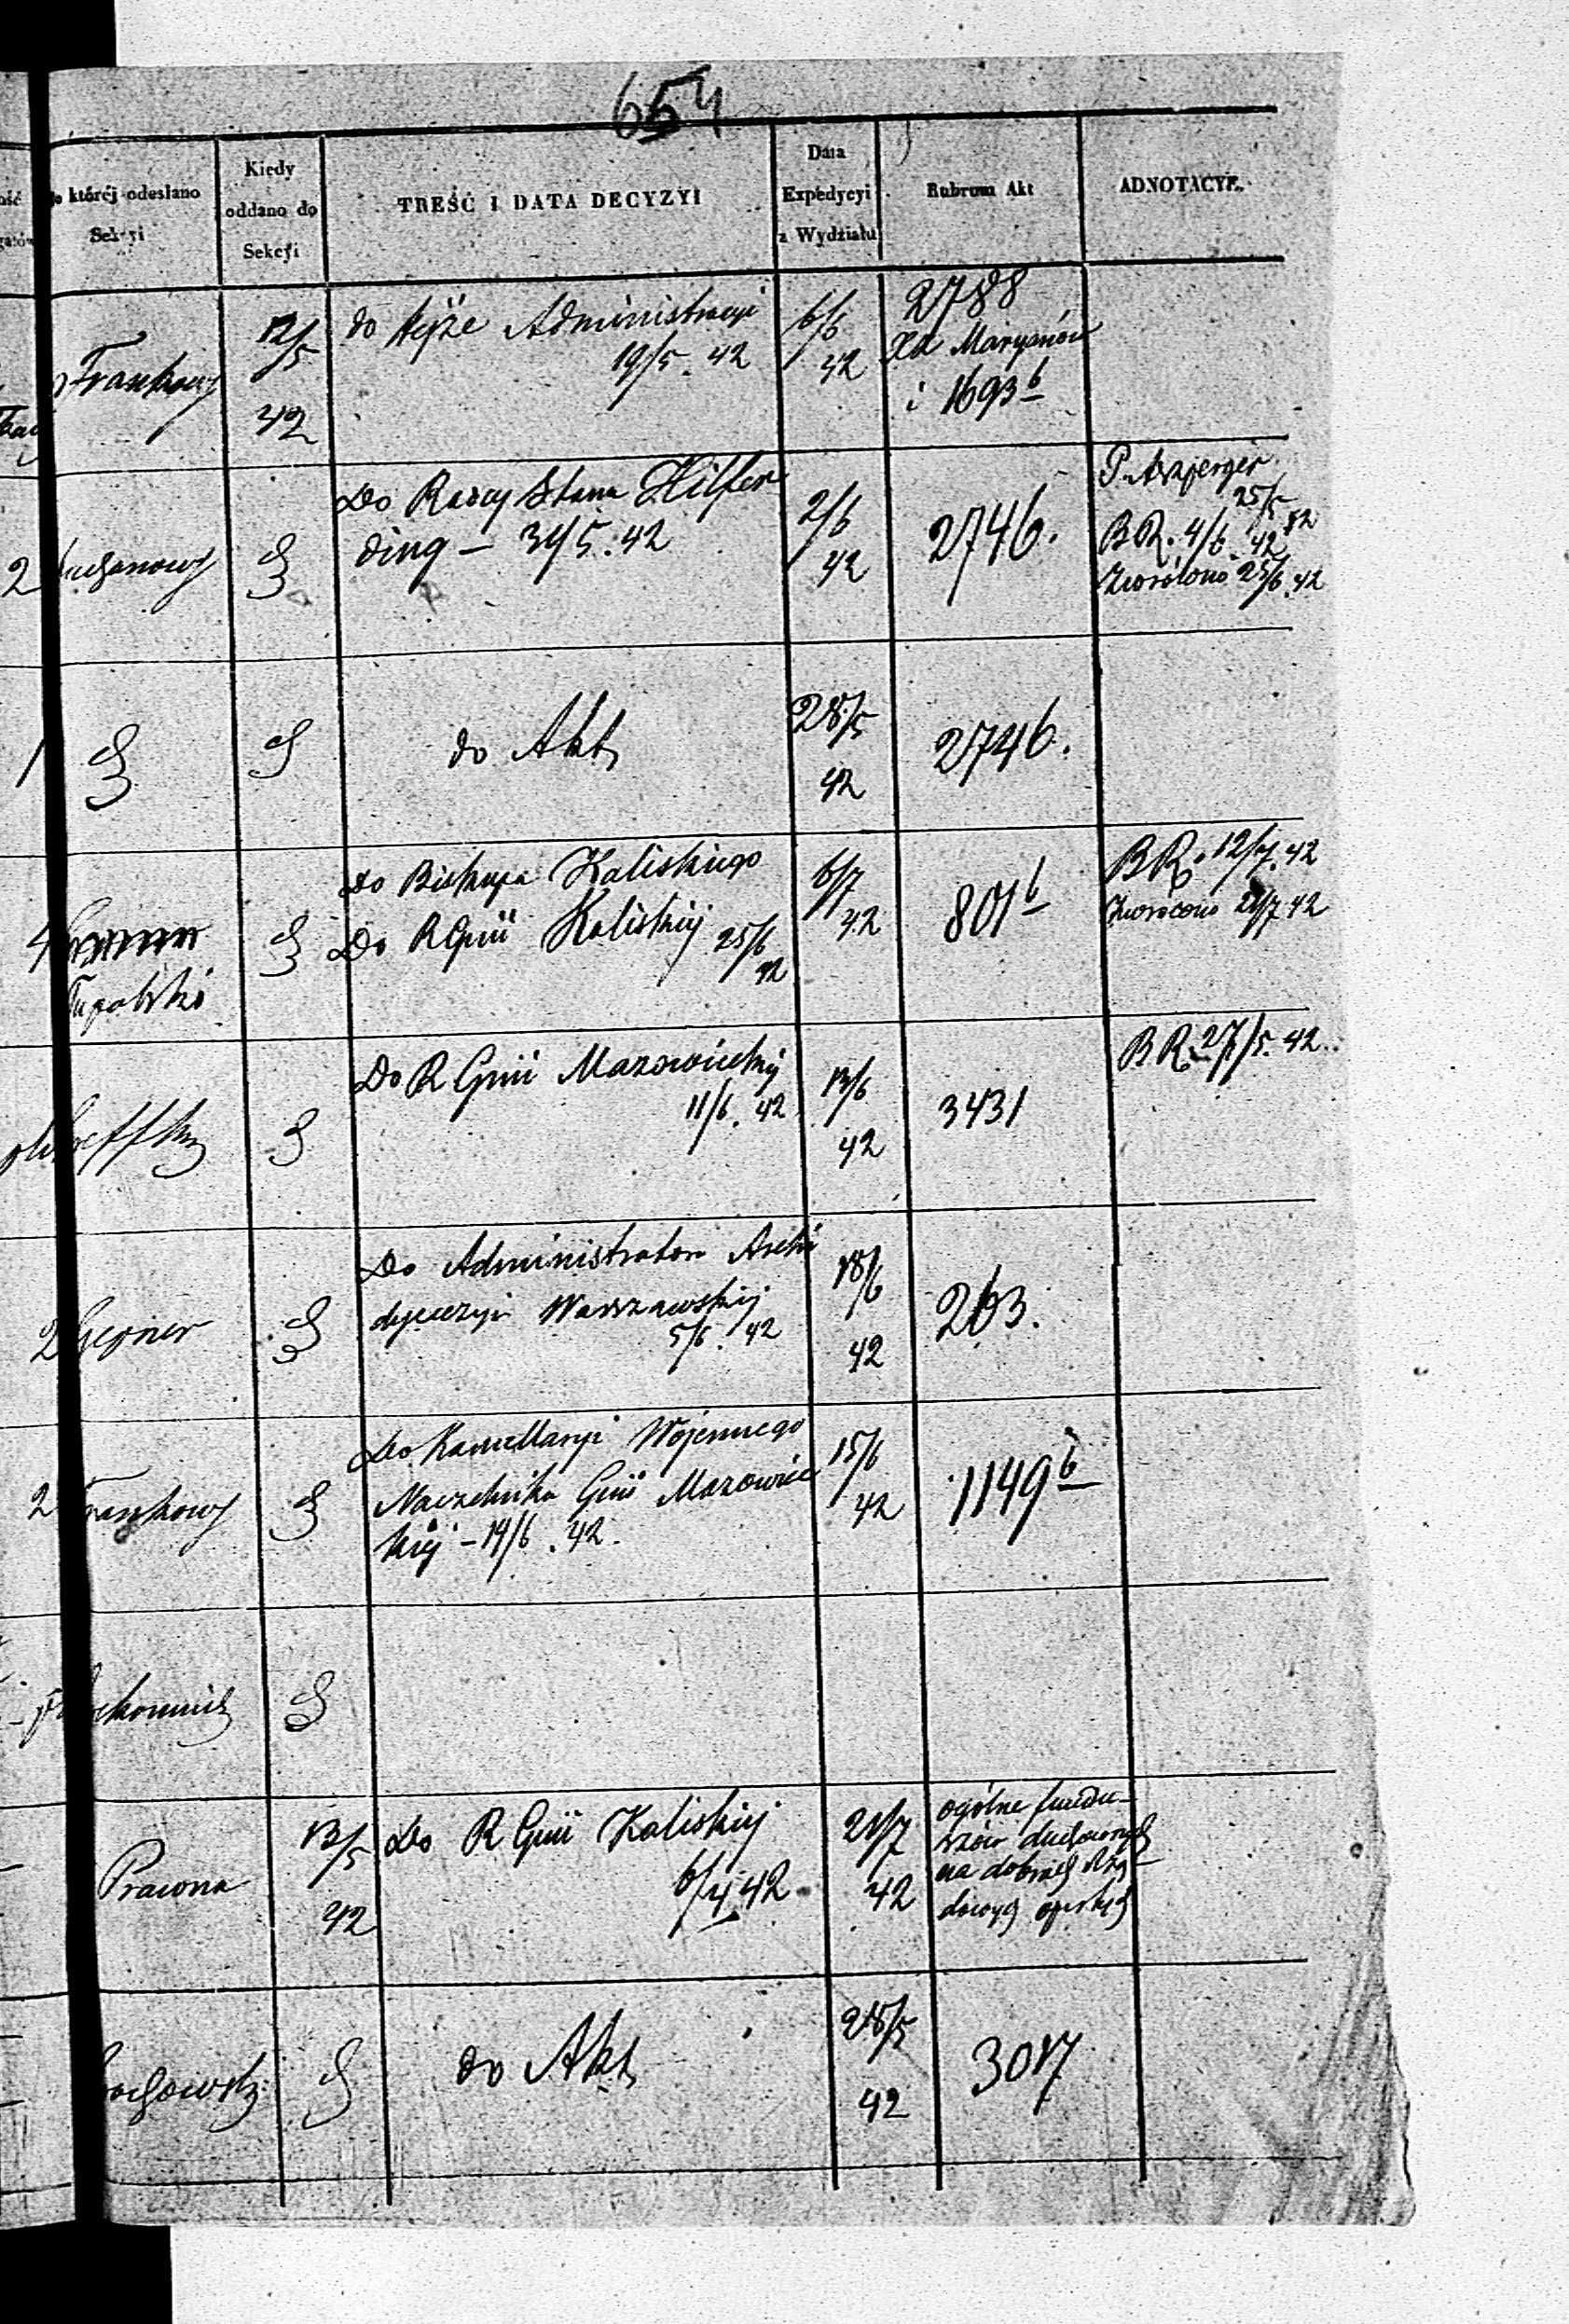 654
do której odesłano Sekcyi
Kiedy oddano do Sekcyi
TREŚĆ I DATA DECYZYI
Data Expedycyi z Wydziału
Rubrum Akt
ADNOTACYE.
Frankowy
12/5 42
do tejże Administracyi
19/5. 42
6/6 42
2788
Xa Maryanów
i 1693 b
2
Do Radcy Stanu Hilfer
ding - 31/5. 42
2/6 42
2746.
25/5 42
B R. 4/6. 42
Zwrócono 25/6. 42
1
do Akt
28/5 42
2746.
4
Tupalski
Do Biskupa Kaliskiego
Do R Gnii Kaliskiej 25/6 42
6/7 42
801 b
B R. 12/7. 42
Zwrócono 21/7 42
Do R Gnii Mazowieckiej
11/6. 42
13/6 42
3431
B R. 27/5. 42.
2
Do Administratora Archi
dyecezyi Warszawskiej
5/6. 42
18/6 42
263.
2 Frankowy
Do Kancellaryi Wojennego
Naczelnika Gnii Mazowiec
kiej - 14/6. 42.
15/6 42
1149 b
Prawna
13/5 42
Do R Gnii Kaliskiej
6/7 42
21/7 42
ogólne fundu-
szów duchownych
na dobrach Rzą-
dowych
do Akt
28/5 42
3017